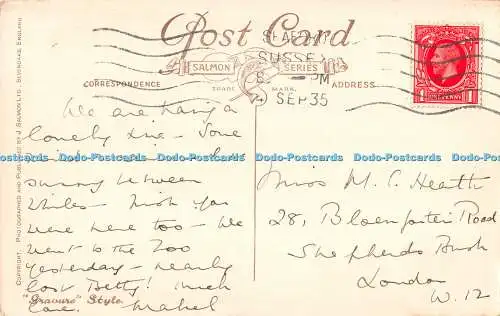 Post Card
SALMON SERIES
TRADE MARK
CORRESPONDENCE
ADDRESS
SEAFORD
SUSSEX
PM
SEP 35
COPYRIGHT. PHOTOGRAPHED AND PUBLISHED BY J. SALMON LTD., SEVENOAKS, ENGLAND
We are having a
lovely time - Some
sunny between
whiles - wish you
were here too - We
went to the Zoo
yesterday - nearly
lost Betty! Much
love. Mabel
"Gravure" Style.
Miss M. C. Heath
28, Bloemfontein Road
Shepherds Bush
London
W. 12
Dodo-Postcards Dodo-Postcards Dodo-Postcards Dodo-Postcards Dodo-Postcards